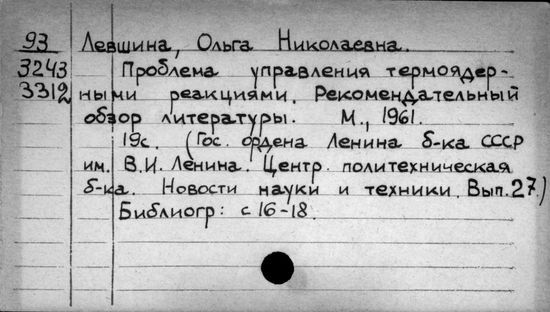 93 Левшина, Ольга Николаевна.
3243 Проблема управления термоядер-
3312 ными реакциями. Рекомендательный
обзор литературы. М., 1961.
19с. (Гос. ордена Ленина б-ка СССР
им. В.И. Ленина. Центр. политехническая
б-ка. Новости науки и техники. Вып. 27.)
Библиогр: с 16-18.